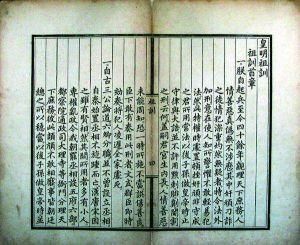 皇明祖訓
祖訓首章
一朕自起兵至今四十餘年親理天下庶務人
情善惡真偽無不涉歷其中奸頑刁詐
之徒情犯深重灼然無疑者特令法外
加刑意在使人知所警懼不敢輕易犯
法然此特權時處置頓挫奸頑非守成
之君所用常法以後子孫做皇帝時止
守律與大誥並不許用黥刺剕劓閹割
之刑云何蓋嗣君宮內生長人情善惡
祖訓
未能周知恐一時所施不當誤傷善良
臣下敢有奏用此刑者文武群臣即時
劾奏將犯人凌遲全家處死
一自古三公論道六卿分職並不曾設立丞相
自秦始置丞相不旋踵而亡漢唐宋因
之雖有賢相然其間所用者多有小人
專權亂政今我朝罷丞相設五府六部
都察院通政司大理寺等衙門分理天
下庶務彼此頡頏不敢相壓事皆朝廷
總之所以穩當以後子孫做皇帝時並